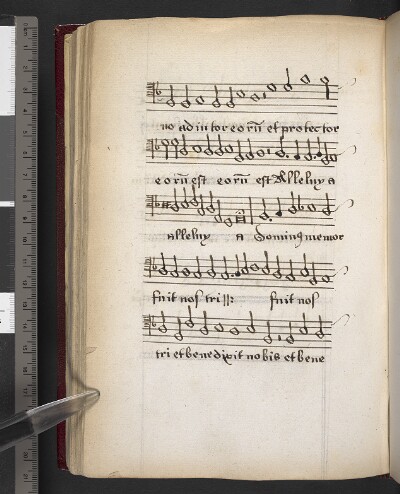 no adiutor eorũ et protector
eorũ est eorũ est Alleluya
alleluy a Dominꝰ memor
fuit nos tri ||: fuit nos
tri et benedixit nobis et bene